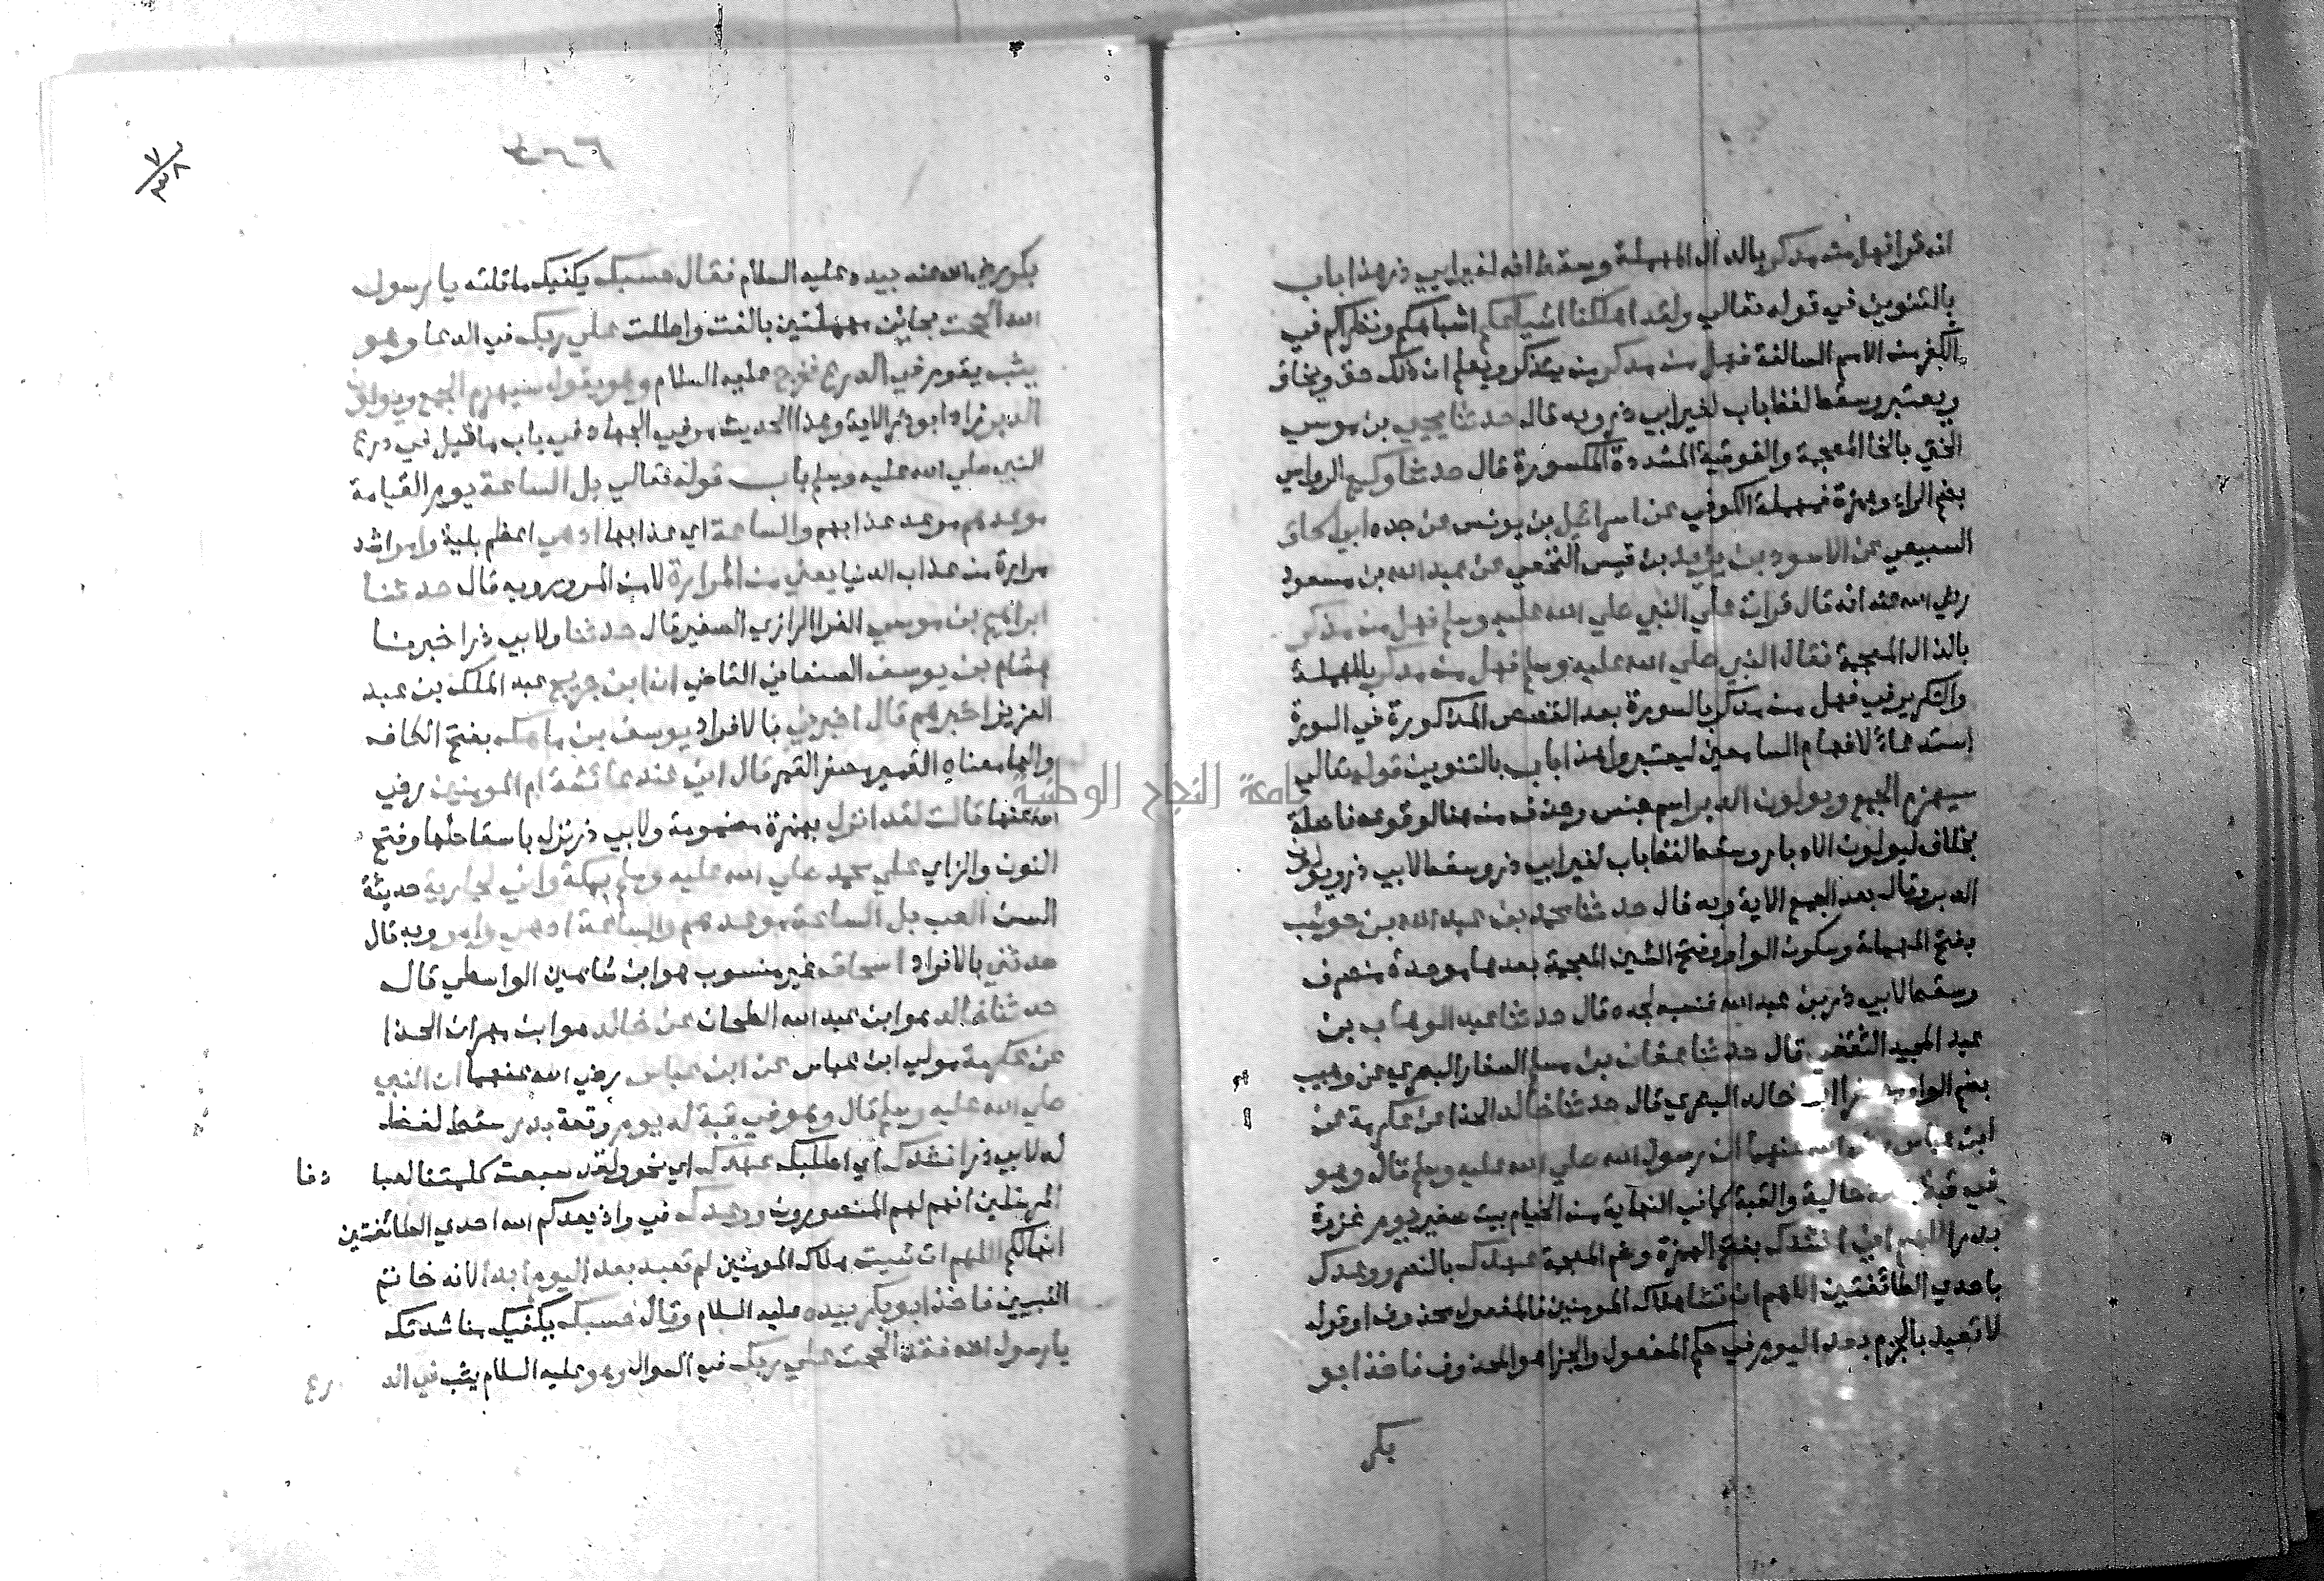 انه قرا فهل من مدكر بالدال المهملة وسقط انه لغير ابي ذر هذا باب
بالتنوين في قوله تعالي ولقد اهلكنا اشياعكم اشباهكم ونظراكم في
الكفر من الامم السالفة فهل من مدكر من يتذكر ويعلم ان ذلك حق ويخاف
ويعتبر وسقط لفظ باب لغير ابي ذر وبه قال حدثنا يحيي بن موسي
الختي بالخا المعجمة والفوقية المشددة المكسورة قال حدثنا وكيع الرواسي
بضم الراء وهمزة فمهملة الكوفي عن اسرائيل بن يونس عن جده ابي اسحاق
السبيعي عن الاسود بن يزيد بن قيس النخعي عن عبد الله بن مسعود
رضي الله عنه انه قال قرات علي النبي صلي الله عليه وسلم فهل من مذكر
بالذال المعجمة فقال النبي صلي الله عليه وسلم فهل من مدكر بالمهملة
والتكرير في فهل من مدكر بالسورة بعد القصص المذكورة في السورة
استدعاءً لافهام السامعين ليعتبروا هذا باب بالتنوين قوله تعالي
سيهزم الجمع ويولون الدبر اسم جنس وحذف منه هنا لوقوعه فاصلة
بخلاف ليولون الادبار وسقط لفظ باب لغير ابي ذر وسقط لابي ذر ويولون
الدبر وقال بعد الجمع الاية وبه قال حدثنا محمد بن عبد الله بن حوشب
بفتح المهملة وسكون الواو وفتح الشين المعجمة بعدها موحدة منصرف
وسقط لابي ذر بن عبد الله فنسبه لجده قال حدثنا عبد الوهاب بن
عبد المجيد الثقفي قال حدثنا عفان بن مسلم الصفار البصري عن وهيب
بضم الواو خالد البصري قال حدثنا خالد الحذا عن عكرمة عن
ابن عباس رضي الله عنهما ان رسول الله صلي الله عليه وسلم قال وهو
في قبة حالية والقبة كما في النهاية من الخيام بيت صغير يوم غزوة
بدر اللهم اني انشدك بفتح الهمزة وضم المعجمة عهدك بالنصر ووعدك
باحدي الطائفتين اللهم ان تشا هلاك المومنين فالمفعول محذوف او قوله
لا تعبد بالجزم بعد اليوم في حكم المفعول والجزا هو المحذوف فاخذ ابو
بكر
٢٦٦
بكر رضي الله عنه بيده عليه السلام فقال حسبك يكفيك ما قلته يا رسول
الله الححت بحائين مهملتين بالغت واطلت علي ربك في الدعا وهو
يثب يقوم في الدرع فخرج عليه السلام وهو يقول سيهزم الجمع ويولون
الدبر زاد ابو ذر الاية وهذا الحديث مر في الجهاد في باب ما قيل في درع
النبي صلي الله عليه وسلم باب قوله تعالي بل الساعة يوم القيامة
موعدهم موعد عذابهم والساعة اي عذابها ادهي اعظم بلية وامر اشد
مرارة من عذاب الدنيا يعني من المرارة لا من المرور وبه قال حدثنا
ابراهيم بن موسي الفرا الرازي الصغير قال حدثنا ولابي ذر اخبرنا
هشام بن يوسف الصنعاني القاضي ان ابن جريج عبد الملك بن عبد
العزيز اخبرهم قال اخبرني بالافراد يوسف بن ماهك بفتح الكاف
والها معناه القمير مصغر القمر قال اني عند عائشة ام المومنين رضي
الله عنها قالت لقد انزل بهمزة مضمومة ولابي ذر نزل باسقاطها وفتح
النون والزاي علي محمد صلي الله عليه وسلم بمكة واني لجارية حديثة
السن العب بل الساعة موعدهم والساعة ادهي وامر وبه قال
حدثني بالافراد اسحاق غير منسوب هو ابن شاهين الواسطي قال
حدثنا خالد هو ابن عبد الله الطحان عن خالد هو ابن مهران الحذا
عن عكرمة مولي ابن عباس عن ابن عباس رضي الله عنهما ان النبي
صلي الله عليه وسلم قال وهو في قبة له يوم وقعة بدر سقط لفظ
له لابي ذر انشدك اي اطلبك عهدك اي نحو ولقد سبقت كلمتنا لعبادنا
المرسلين انهم لهم المنصورون ووعدك في واذ يعدكم الله احدي الطائفتين
انها لكم اللهم ان شيت هلاك المومنين لم تعبد بعد اليوم ابدا لانه خاتم
النبيين فاخذ ابو بكر بيده عليه السلام وقال حسبك يكفيك مناشدتك
يا رسول الله فقد الححت علي ربك في السوال وهو عليه السلام يثب في الدرع
جامعة النجاح الوطنية